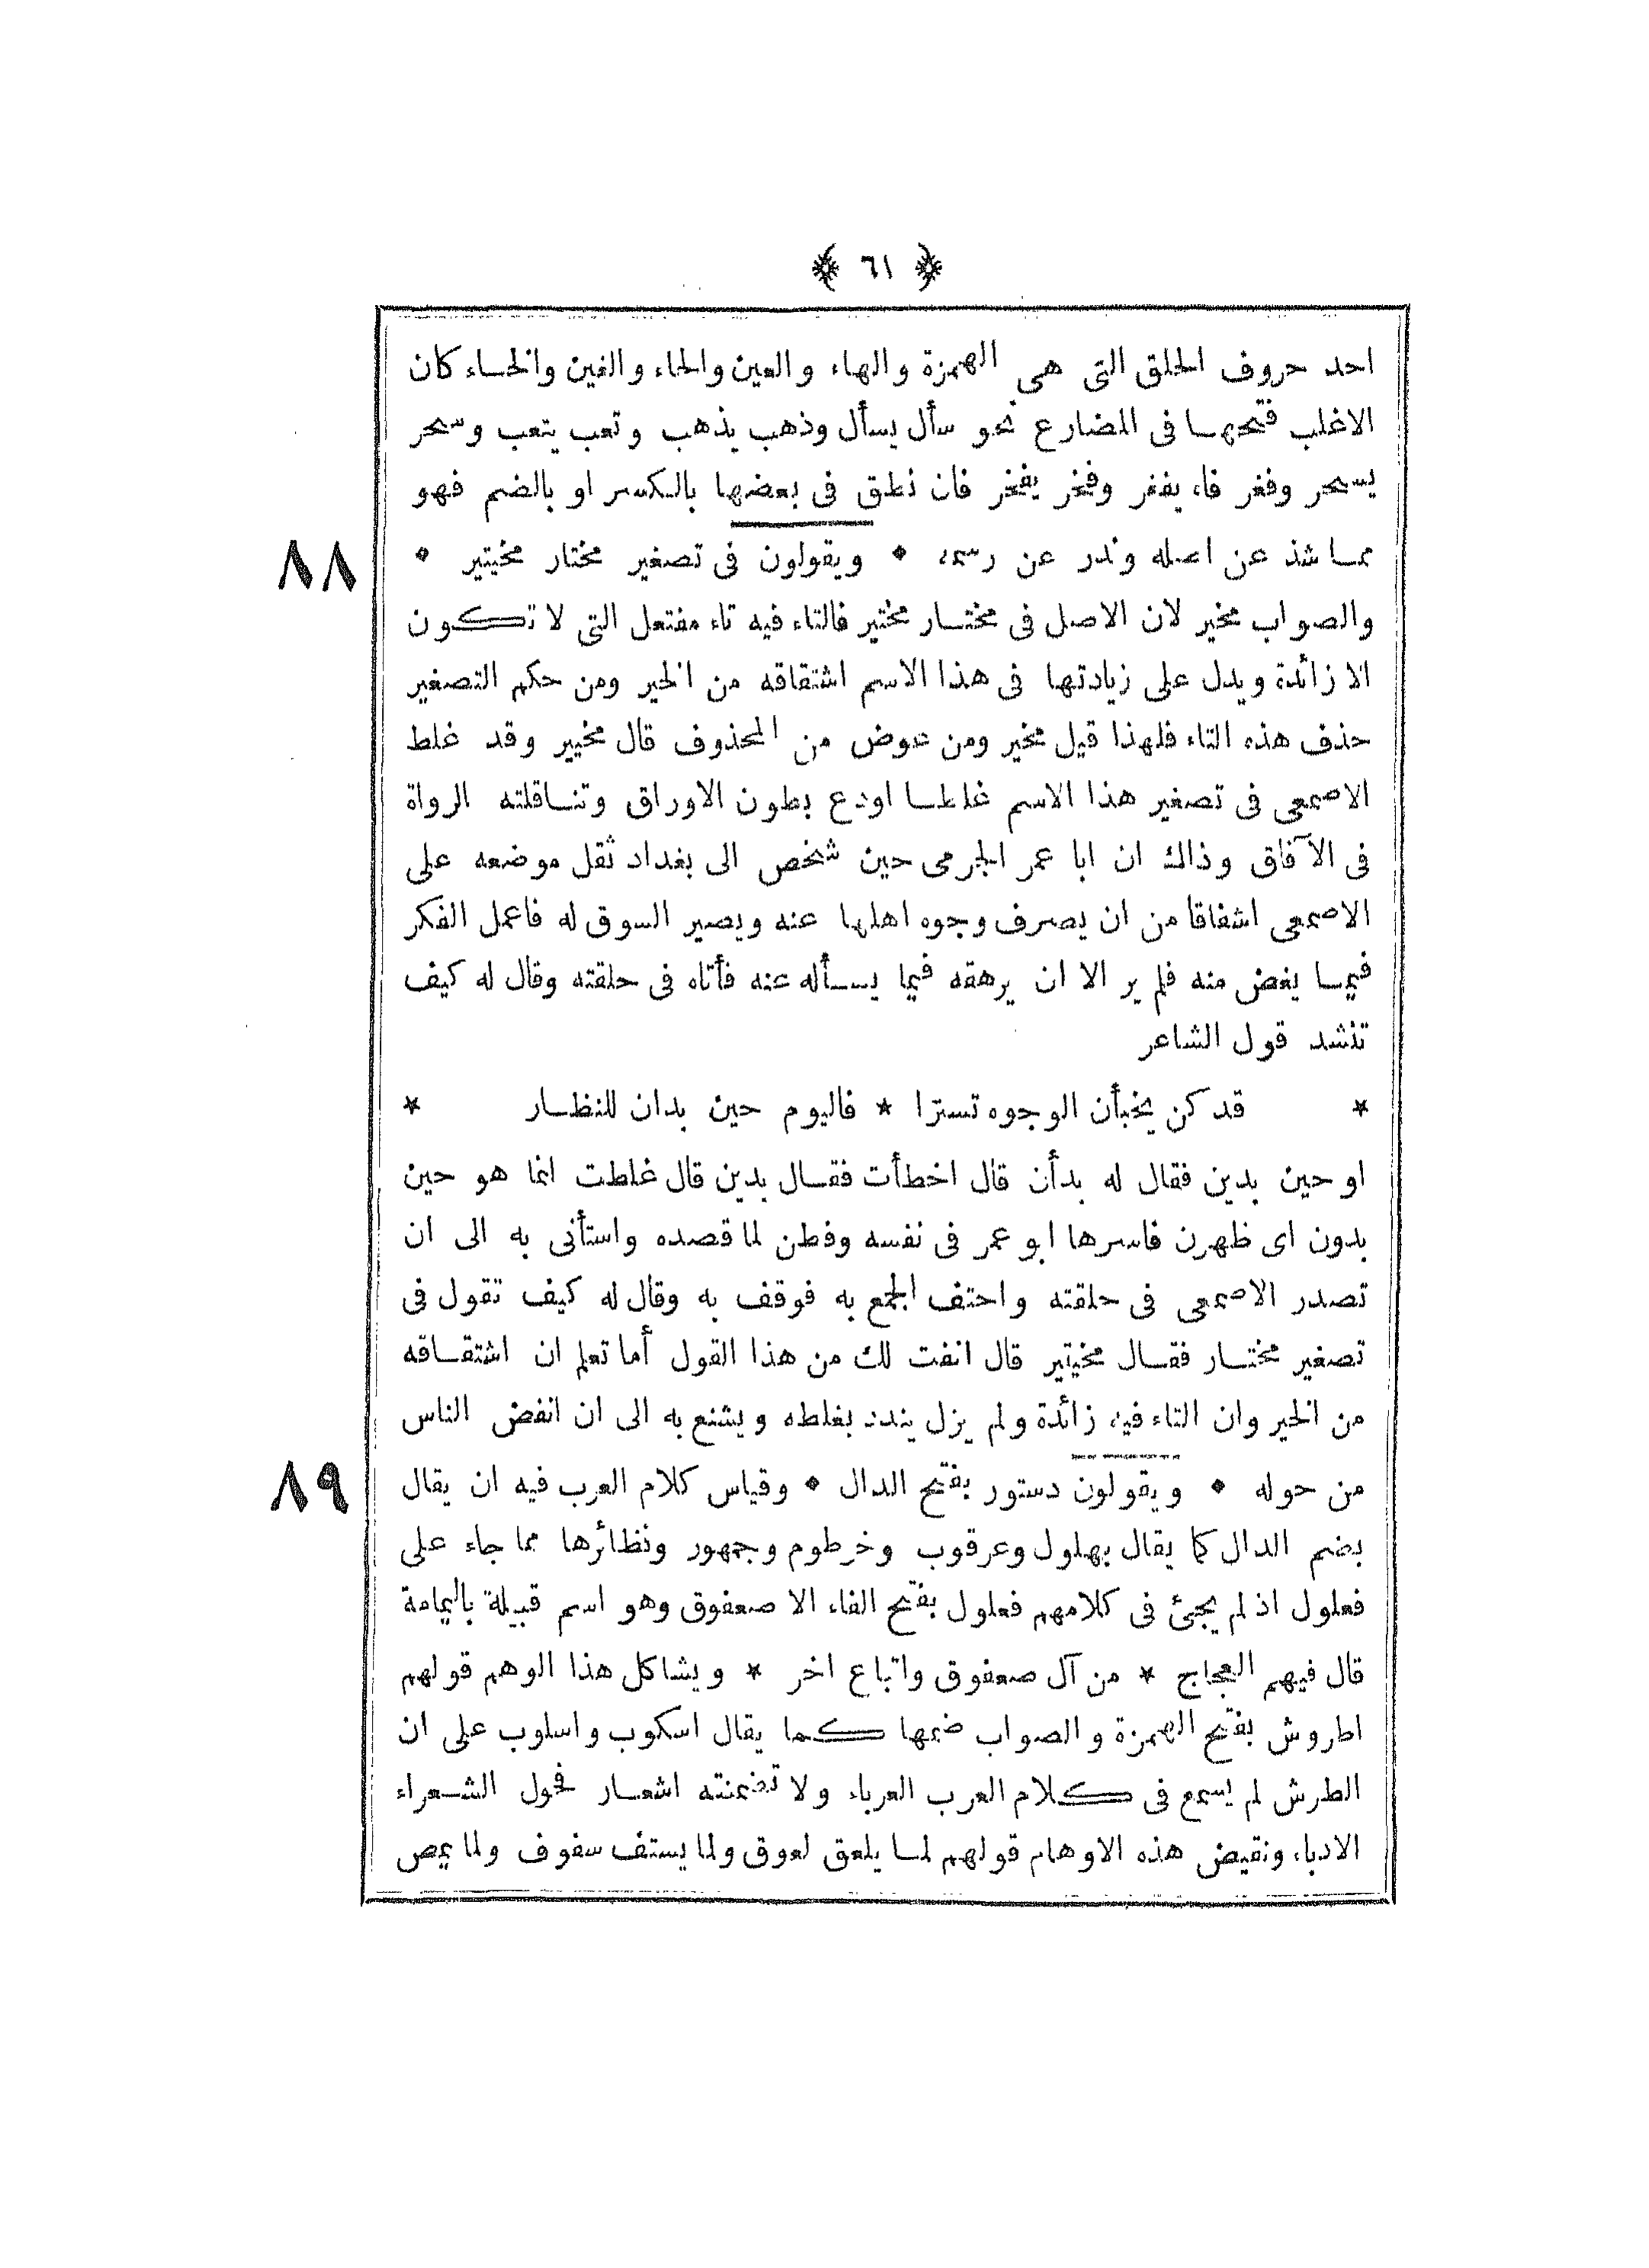 ﴿ ٦١ ﴾
احد حروف الحلق التى هى الهمزة والهاء والعين والحاء والغين والخاء كان
الاغلب فتحها فى المضارع نحو سأل يسأل وذهب يذهب وتعب يتعب وسحر
يسحر وفغر فاه يفغر وفخر يفخر فان نطق فى بعضها بالكسر او بالضم فهو
٨٨
مما شذ عن اصله وندر عن رسمه * ويقولون فى تصغير مختار مخيتير *
والصواب مخير لان الاصل فى مختار مختير فالتاء فيه تاء مفتعل التى لا تكون
الا زائدة ويدل على زيادتها فى هذا الاسم اشتقاقه من الخير ومن حكم التصغير
حذف هذه التاء فلهذا قيل مخير ومن عوض من المحذوف قال مخيير وقد غلط
الاصمعى فى تصغير هذا الاسم غلطا اودع بطون الاوراق وتناقلته الرواة
فى الآفاق وذاك ان ابا عمر الجرمى حين شخص الى بغداد ثقل موضعه على
الاصمعى اشفاقا من ان يصرف وجوه اهلها عنه ويصير السوق له فاعمل الفكر
فيما يغض منه فلم ير الا ان يرهقه فيما يسأله عنه فأتاه فى حلقته وقال له كيف
تنشد قول الشاعر
* قد كن يخبأن الوجوه تسترا * فاليوم حين بدان للنظار *
او حين بدين فقال له بدأن قال اخطأت فقال بدين قال غلطت انما هو حين
بدون اى ظهرن فاسرها ابو عمر فى نفسه وفطن لما قصده واستأنى به الى ان
تصدر الاصمعى فى حلقته واحتف الجمع به فوقف به وقال له كيف تقول فى
تصغير مختار فقال مخيتير قال انفت لك من هذا القول أما تعلم ان اشتقاقه
من الخير وان التاء فيه زائدة ولم يزل يندد بغلطه ويشنع به الى ان انفض الناس
٨٩
من حوله * ويقولون دستور بفتح الدال * وقياس كلام العرب فيه ان يقال
بضم الدال كما يقال بهلول وعرقوب وخرطوم وجمهور ونظائرها مما جاء على
فعلول اذ لم يجئ فى كلامهم فعلول بفتح الفاء الا صعفوق وهو اسم قبيلة باليمامة
قال فيهم العجاج * من آل صعفوق واتباع اخر * ويشاكل هذا الوهم قولهم
اطروش بفتح الهمزة والصواب ضمها كما يقال اسكوب واسلوب على ان
الطرش لم يسمع فى كلام العرب العرباء ولا تضمنته اشعار فحول الشعراء
الادباء ونقيض هذه الاوهام قولهم لما يلعق لعوق ولما يستف سفوف ولما يمص